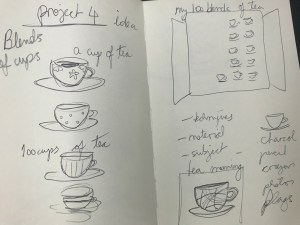 project 4 idea
Blends
of cups
a cup of tea
100 cups of tea
my 100 blends of tea
- material
- subject -
tea morning
charcoal
pencil
crayon